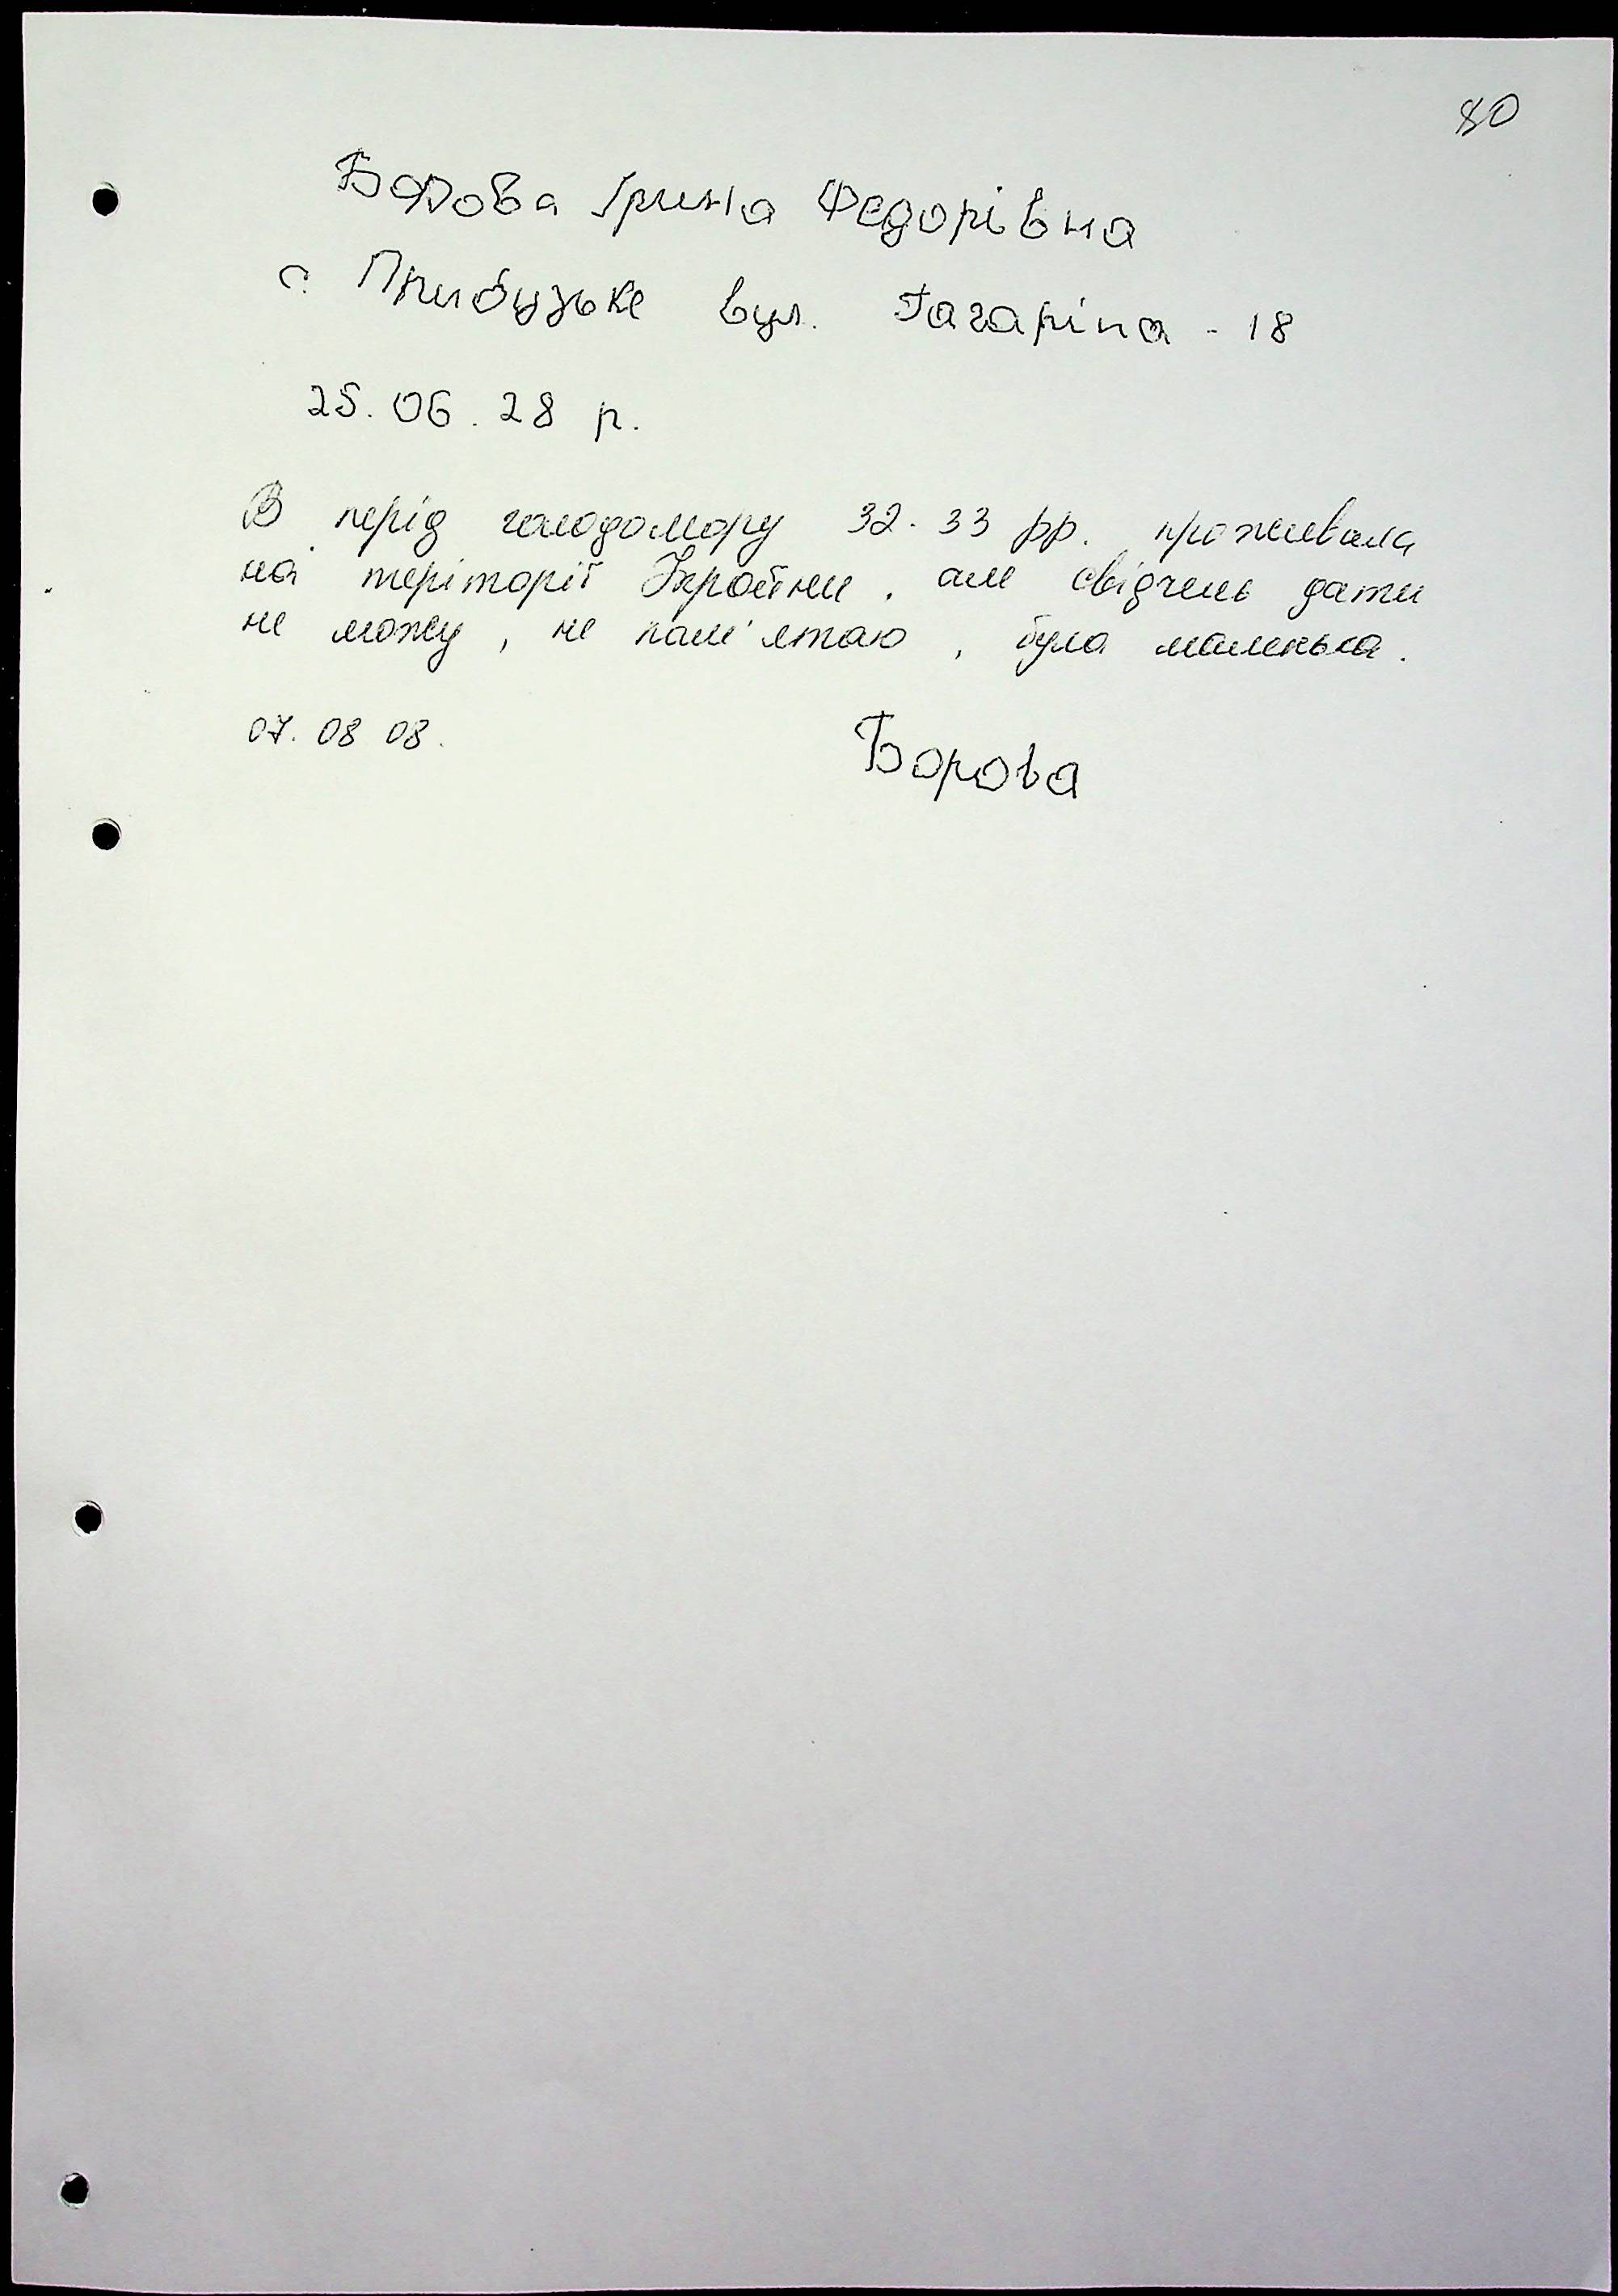 80
Борова Ірина Федорівна
с. Прибузьке вул. Гагаріна - 18
25. 06. 28 р.
В перід голодомору 32-33 рр. проживала
на теріторії Україйни, але свідчень дати
не можу, не пам'ятаю, була маленька.
07. 08 08.
Борова